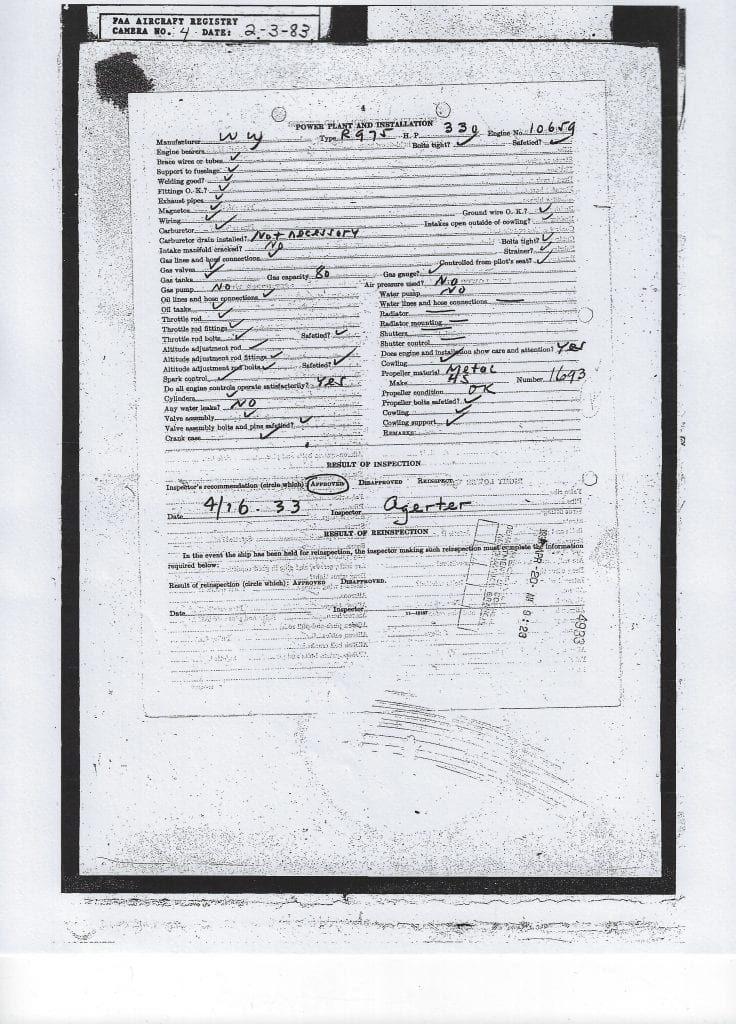 FAA AIRCRAFT REGISTRY
CAMERA NO. 4 DATE: 2-3-83
4
POWER PLANT AND INSTALLATION
Manufacturer W W Type R975 H. P. 330 Engine No. 10659
Engine bearers ✓ Bolts tight? ✓ Safetied? ✓
Brace wires or tubes ✓
Support to fuselage ✓
Welding good? ✓
Fittings O. K.? ✓
Exhaust pipes ✓
Magnetos ✓ Ground wire O. K.? ✓
Wiring ✓ Intakes open outside of cowling? ✓
Carburetor ✓
Carburetor drain installed? Not necessary
Intake manifold cracked? No Bolts tight? ✓
Gas lines and hose connections ✓ Strainer? ✓
Gas valves ✓ Controlled from pilot's seat? ✓
Gas tanks ✓ Gas capacity 80 Gas gauge? ✓
Gas pump NO Air pressure used? NO
Oil lines and hose connections ✓
Oil tanks ✓
Throttle rod ✓
Throttle rod fittings ✓
Throttle rod bolts ✓ Safetied? ✓
Altitude adjustment rod ✓
Altitude adjustment rod fittings ✓
Altitude adjustment rod bolts ✓ Safetied? ✓
Spark control ✓
Do all engine controls operate satisfactorily? Yes
Cylinders ✓
Any water leaks? NO
Valve assembly ✓
Valve assembly bolts and pins safetied? ✓
Crank case ✓
Water pump NO
Water lines and hose connections —
Radiator —
Radiator mounting —
Shutters —
Shutter control —
Does engine and installation show care and attention? Yes
Cowling ✓
Propeller material Metal
Make HS Number 1693
Propeller condition OK
Propeller bolts safetied? ✓
Cowling ✓
Cowling support ✓
REMARKS
RESULT OF INSPECTION
Inspector's recommendation (circle which) APPROVED DISAPPROVED REINSPECT
Date 4/16-33 Inspector Agerter
RESULT OF REINSPECTION
In the event the ship has been held for reinspection, the inspector making such reinspection must complete the information
required below:
Result of reinspection (circle which): APPROVED DISAPPROVED.
Date Inspector
APR-20 9:23